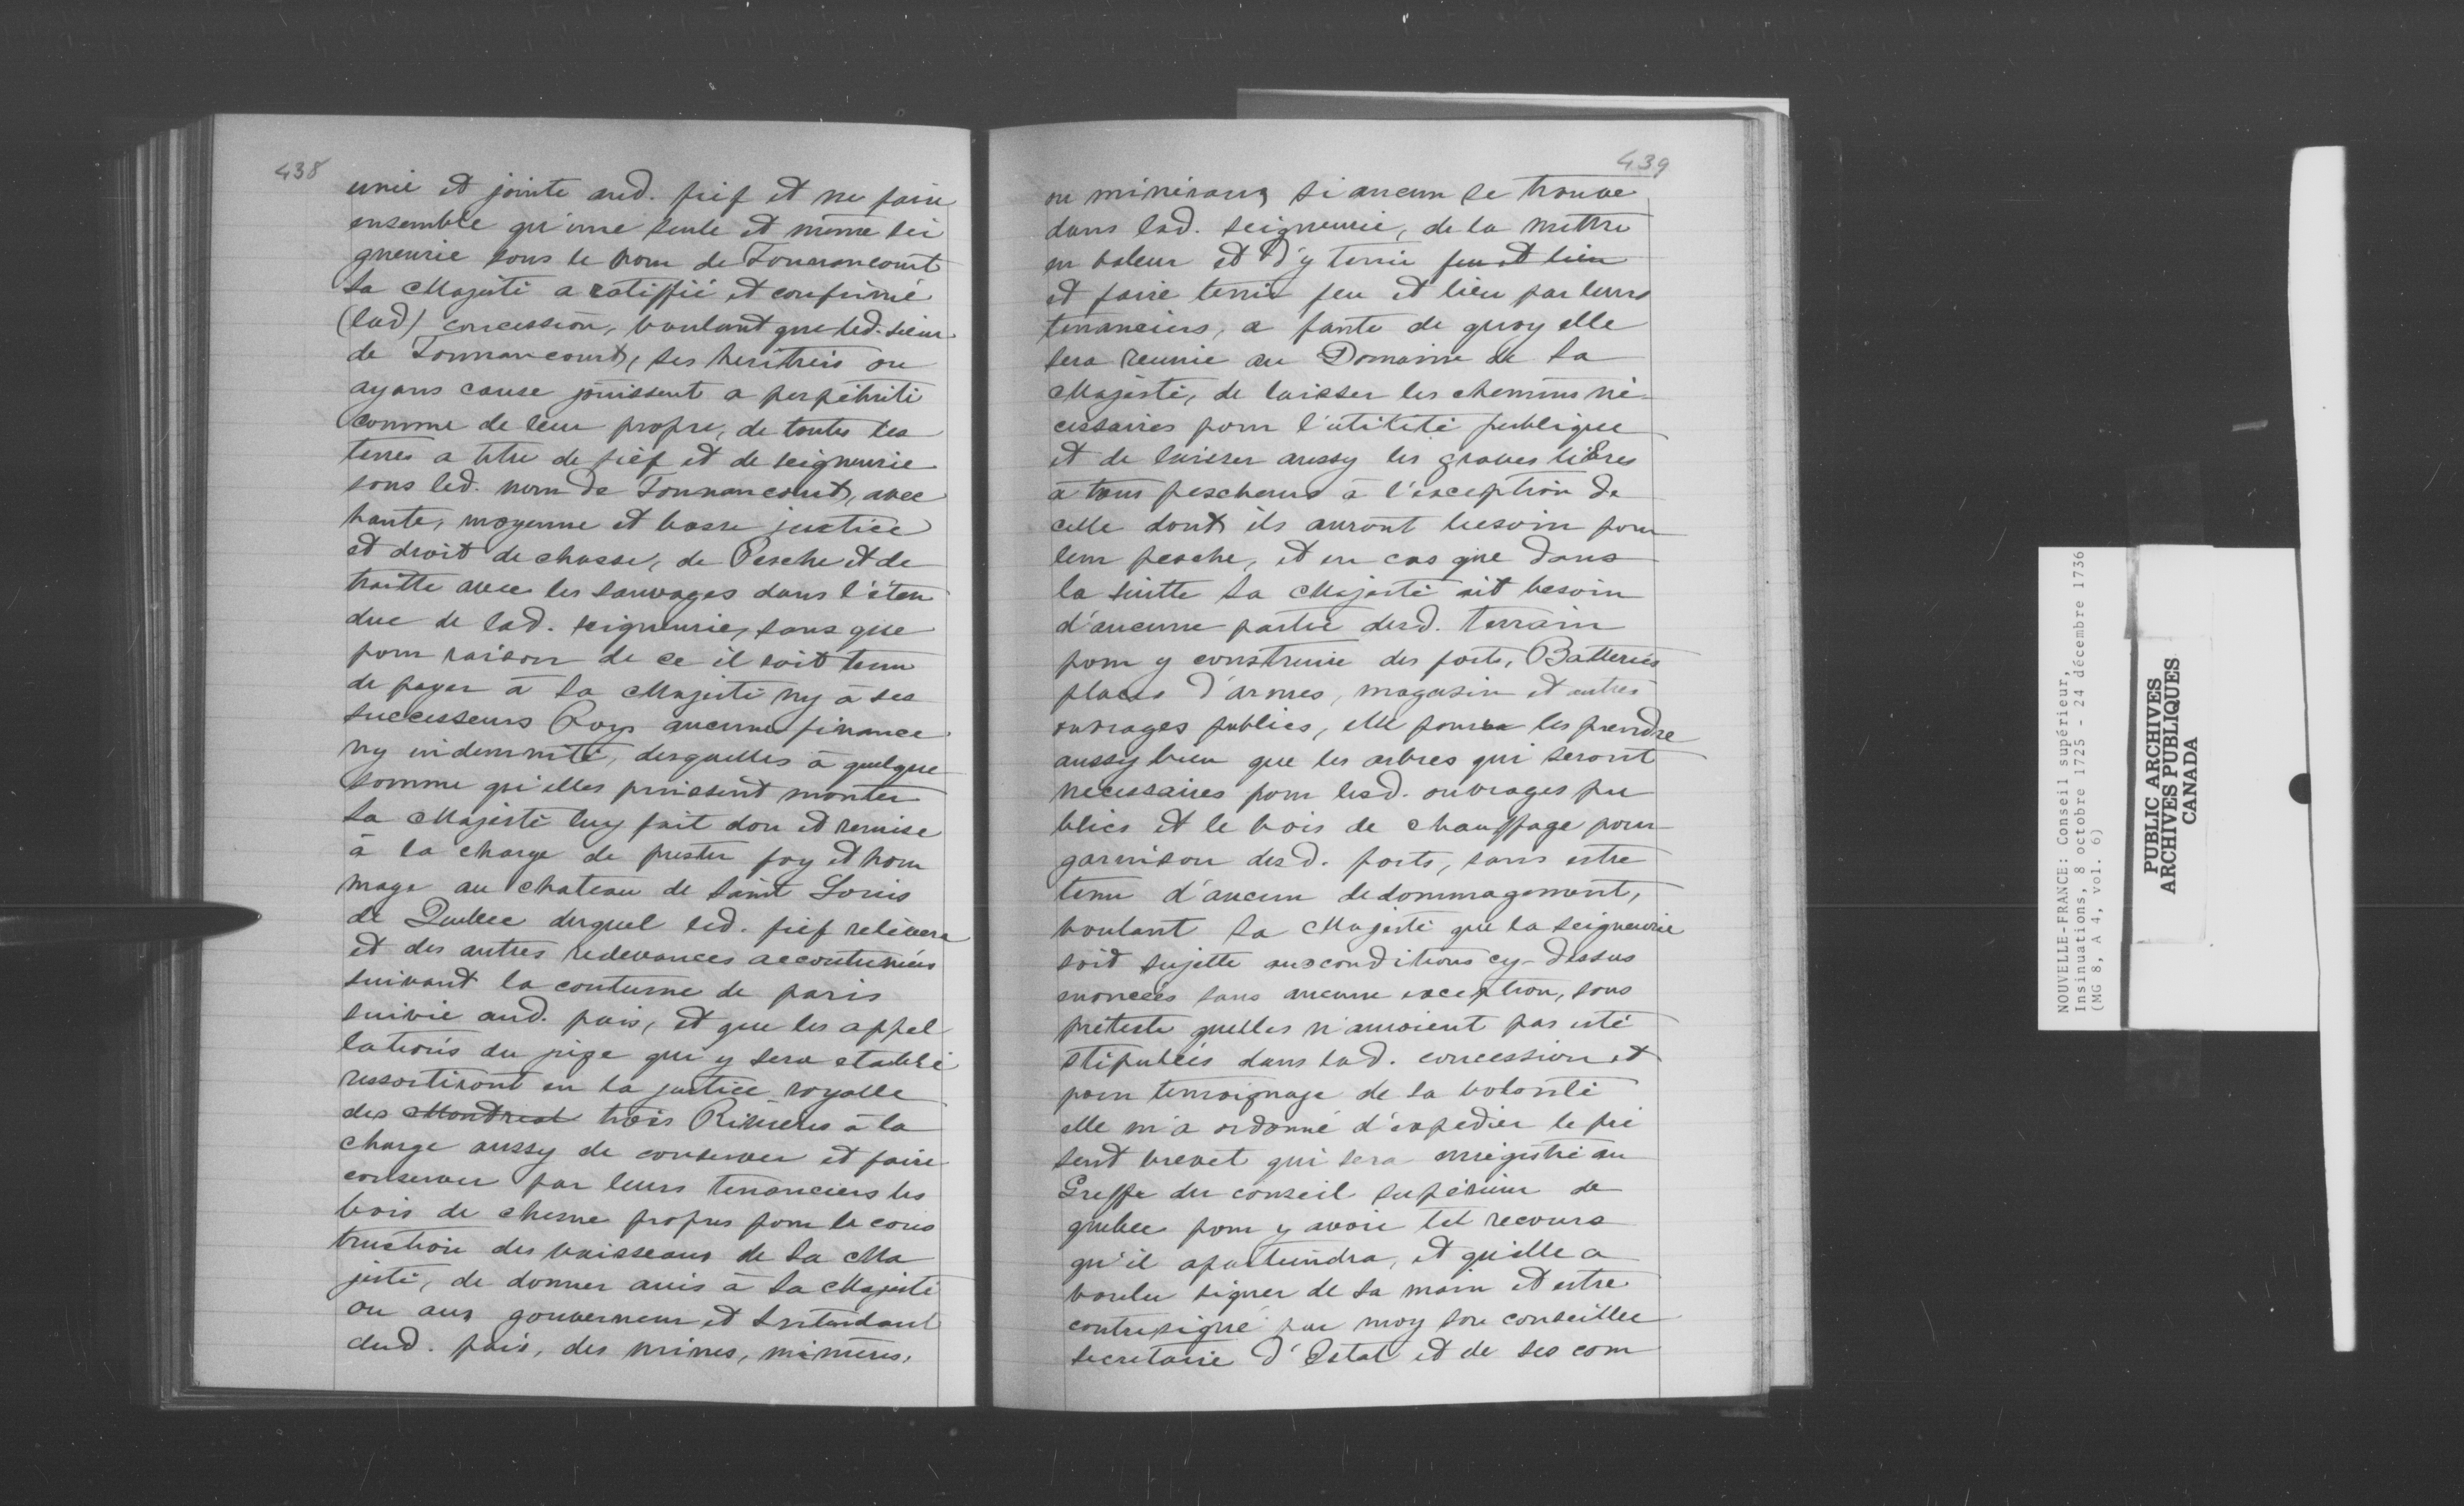 438
unie et jointe aud. fief et ne faire
ensemble qu'une seule et même sei
gneurie sous le nom de Tonnancourt
sa Majesté a ratiffié et confirmé
(lad) concession, voulant que led. sieur
de Tonnancourt, ses heritiers ou
ayans cause jouissent a perpétuité
comme de leur propre, de toutes les
terres a titre de fief et de seigneurie
sous led. nom de Tonnancourt, avec
haute, moyenne et basse justice
et droit de chasse, de Pesche et de
traitte avec les sauvages dans l'éten
due de lad. seigneurie, sans que
pour raison de ce il soit tenu
de payer à sa Majesté ny à ses
successeurs Roys aucune finance
ny indemnité, desquelles à quelque
somme qu'elles puissent monter
sa Majesté luy fait don et remise
à la charge de prester foy et hom
mage au chateau de Saint Louis
de Quebec duquel led. fief relèvera
et des autres redevances accoutumées
suivant la coutume de paris
suivie aud. pais, et que les appel
lations du juge qui y sera etabli
ressortiront en la justice royalle
des Montreal trois Rivieres à la
charge aussy de conserver et faire
conserver par leurs tenanciers les
bois de chesne propres pour la cons
truction des vaisseaux de Sa Ma
jesté, de donner avis à Sa Majesté
ou aux gouverneur et Intendant
dud. pais, des mines, minieres,
439
ou mineraux si aucun se trouve
dans lad. seigneurie, de la mettre
en valeur et d'y tenir feu et lieu
et faire tenir feu et lieu par leurs
tenanciers, a faute de quoy elle
sera reunie au Domaine de Sa
Majesté, de laisser les chemins né-
cessaires pour l'utilité publique
et de laisser aussy les graves libres
à tous pescheurs à l'exception de
celle dont ils auront besoin pour
leur pesche, et en cas que dans
la suitte Sa Majesté ait besoin
d'aucune partie desd. terrain
pour y construire des forts, Batteries
places d'armes, magasin et autres
ouvrages publics, elle pourra les prendre
aussy bien que les arbres qui seront
necessaires pour lesd. ouvrages pu
blics et le bois de chauffage pour
garnison desd. forts, sans estre
tenu d'aucun dedommagement,
voulant Sa Majesté que la seigneurie
soit sujette aux conditions cy-dessus
enoncées sans aucune exception, sous
prétexte quelles n'auroient pas esté
stipulées dans lad. concession et
pour temoignage de sa volonté
elle m'a ordonné d'expedier le pré
sent brevet qui sera enregistré au
Greffe du conseil supérieur de
quebec pour y avoir tel recours
qu'il apartiendra, et qu'elle a
voulu signer de sa main et estre
contresigné par moy son conseiller
secretaire d'Estat et de ses com
NOUVELLE-FRANCE: Conseil supérieur,
Insinuations, 8 octobre 1725 - 24 décembre 1736
(MG 8, A 4, vol. 6)
PUBLIC ARCHIVES
ARCHIVES PUBLIQUES
CANADA